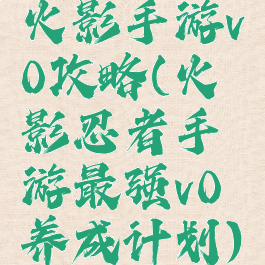 火影手游v
0攻略(火
影忍者手
游最强v0
养成计划)